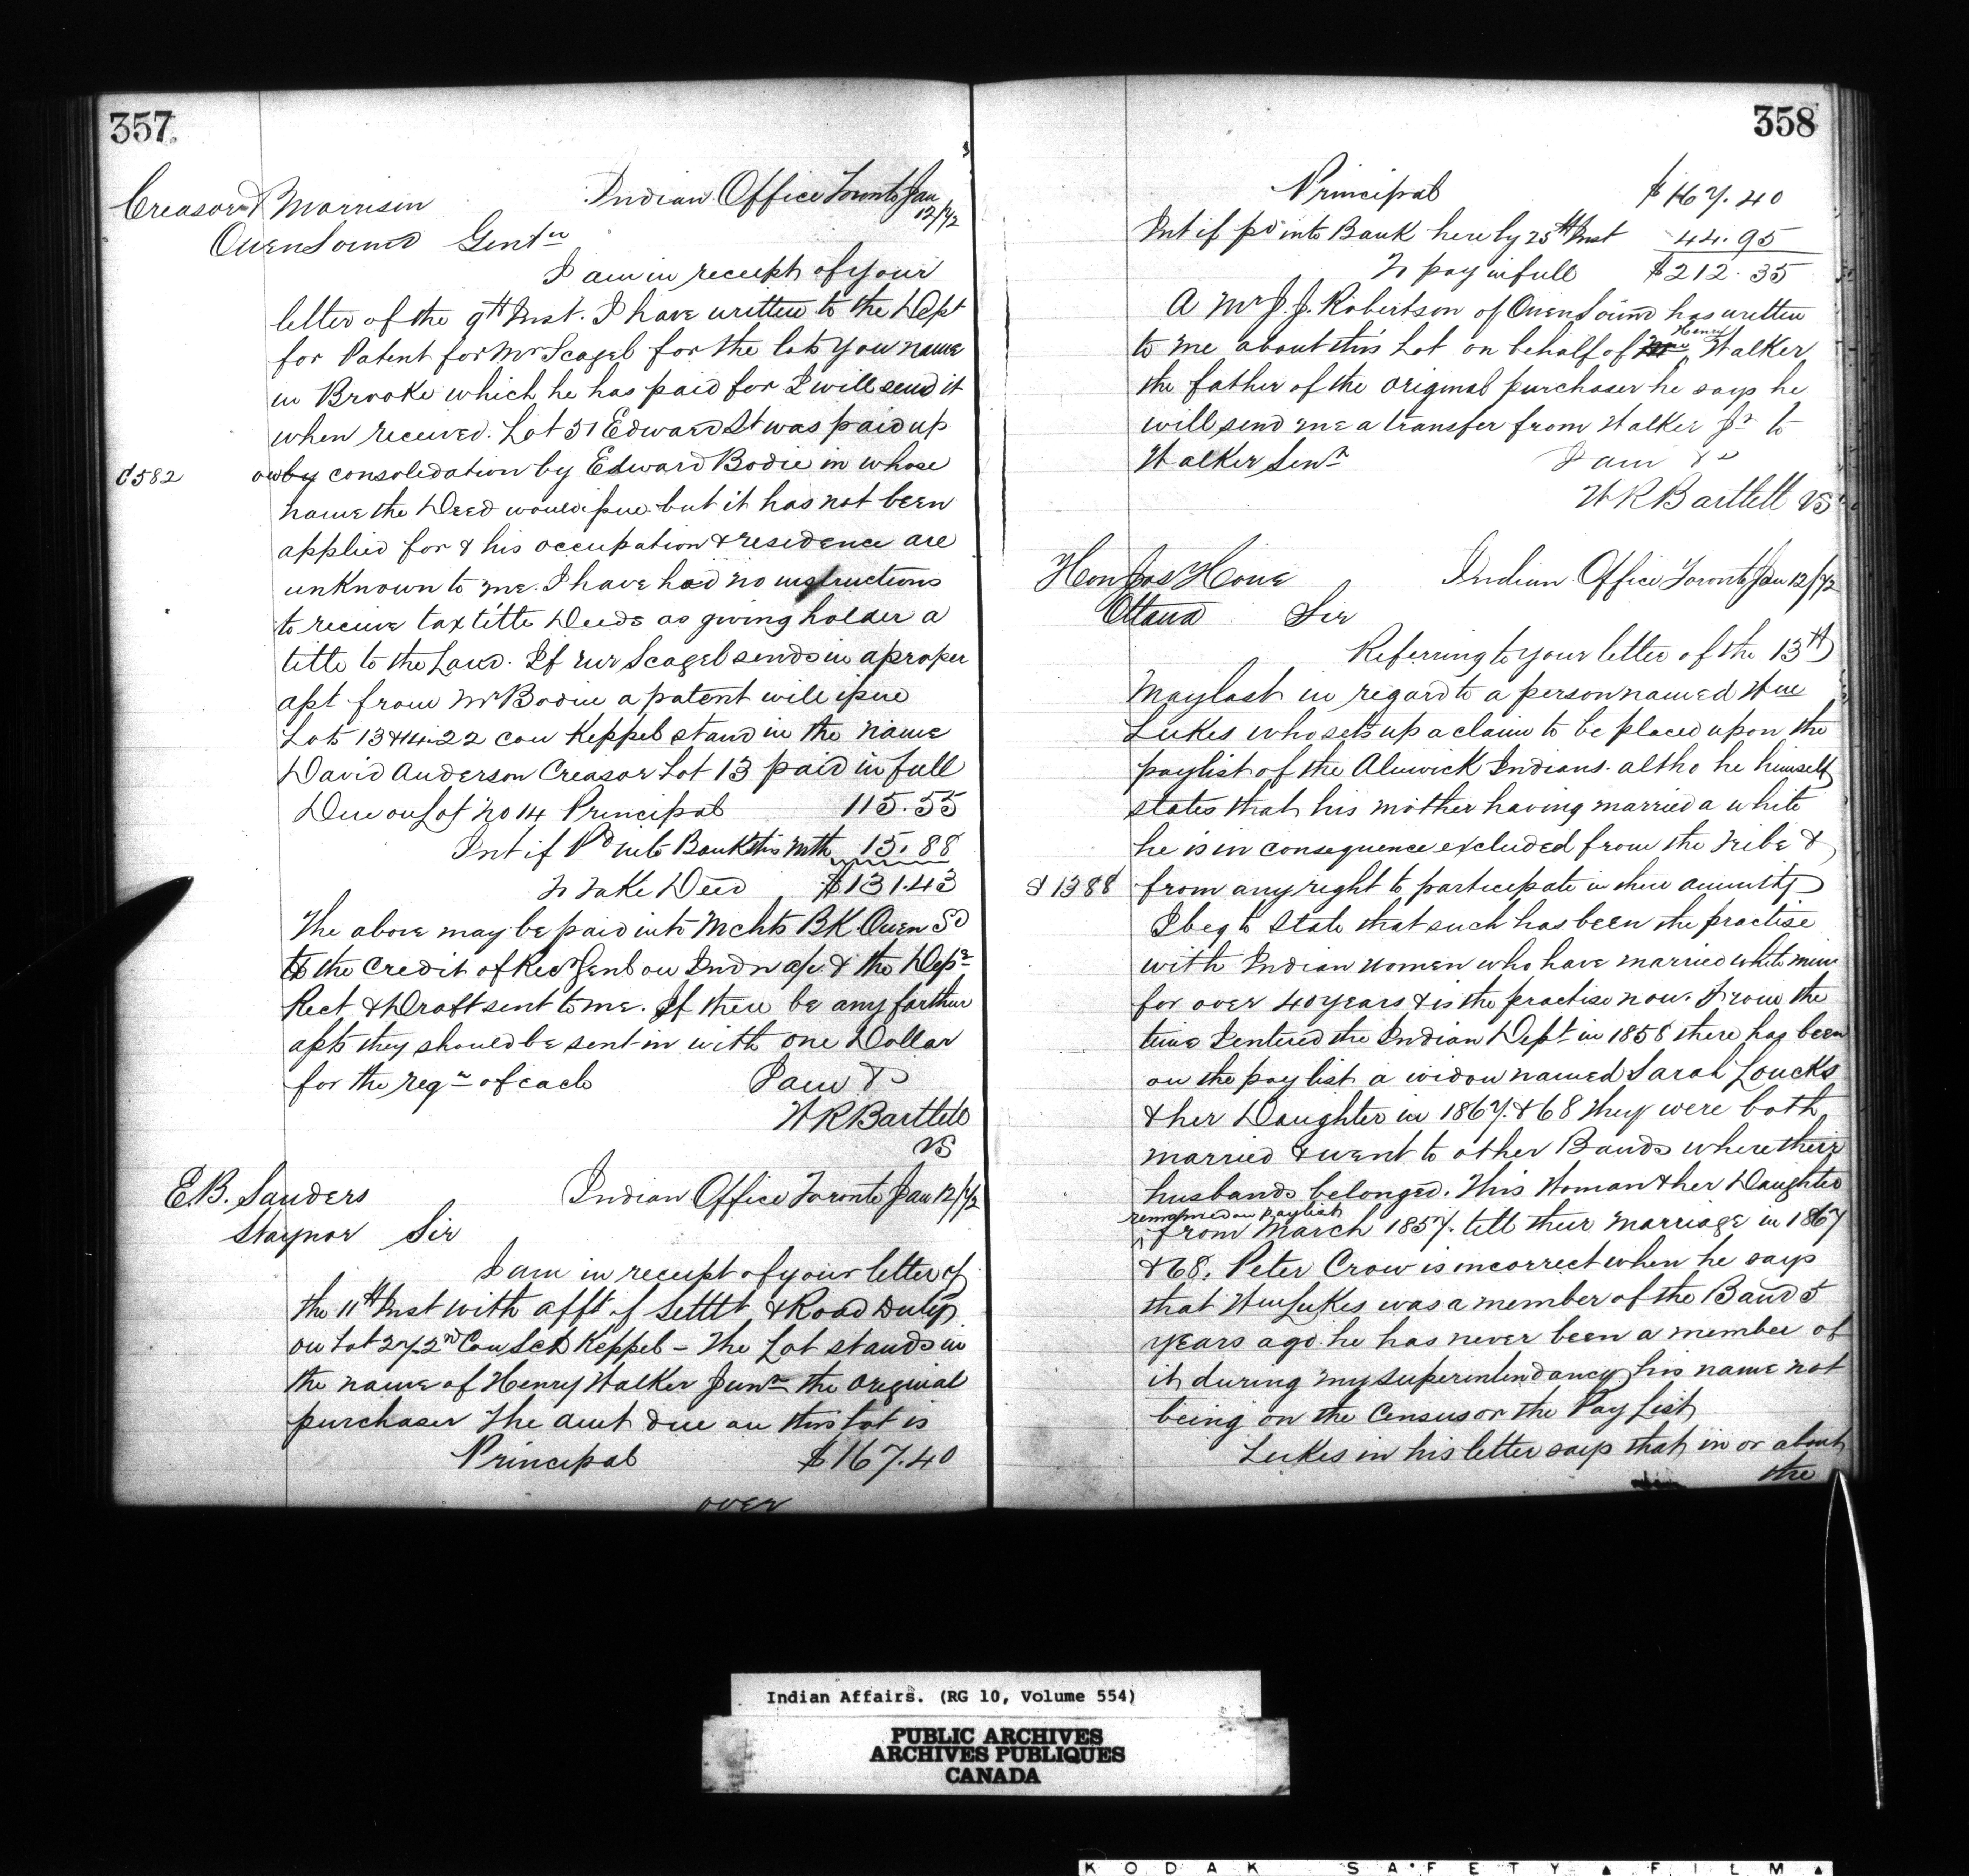 357
Creasor & Morrison Indian Office Toronto Jan
12/72
Owen Sound Gentn
I am in receipt of your
letter of the 9th Inst. I have written to the Dept
for Patent for Mr Scagel for the lots you name
in Brooke which he has paid for I will send it
when received. Lot 51 Edward St was paid up
C582 by consoledation by Edward Bodie in whose
name the Deed would issue but it has not been
applied for & his occupation & residence are
unknown to me. I have had no instructions
to receive tax title Deeds as giving holder a
title to the Land. If Mr Scagel sends in a proper
asst from Mr Bodie a patent will issue
Lots 13 & 14.22 con Keppel stand in the name
David Anderson Creasor Lot 13 paid in full
Due on Lot No 14 Principal 115.55
Int if Pd into Bank this mth 15.88
To take Deed $131.43
The above may be paid into Mchts BK Owen Sd
to the Credit of Rec Genl on Indn a/c & the Dept
Rect & Draft sent to me. If there be any farther
assts they should be sent in with one Dollar
for the regn of each I am &c
W R Bartlett
VS
E.B. Sanders Indian Office Toronto Jan 12/72
Staynor Sir
I am in receipt of your letter of
the 11th Inst with afft of Settlt & Road Dutys
on Lot 27.2nd Con Keppel - The Lot stands in
the name of Henry Walker Junr the original
purchaser The amt due on this lot is
Principal $167.40
over
358
Principal $167.40
Int if pd into Bank here by 25th Inst 44.95
To pay in full $212.35
A Mr J. J. Robertson of Owen Sound has written
Henry
to me about this Lot on behalf of Walker
the father of the original purchaser he says he
will send me a transfer from Walker Jr to
Walker Senr I am &c
W R Bartlett VS
Hon Jos Howe Indian Office Toronto Jan 12/72
Ottawa Sir
Referring to your letter of the 13th
May last in regard to a person named Wm
Lukes who sets up a claim to be placed upon the
paylist of the Alnwick Indians. altho he himself
states that his mother having married a white
he is in consequence excluded from the Tribe &
S1388 from any right to participate in their annuity
I beg to state that such has been the practise
with Indian women who have married white men
for over 40 years & is the practise now. From the
time I entered the Indian Dept in 1858 there has been
on the pay list a widow named Sarah Loucks
& her Daughter in 1867. & 68 they were both
married & went to other Bands where their
husbands belonged. This Woman & her Daughter
remained on paylist
from March 1857. till their marriage in 1867
& 68. Peter Crow is incorrect when he says
that Wm Lukes was a member of the Band 5
years ago. he has never been a member of
it during my superintendancy his name not
being on the Census or the Pay List
Lukes in his letter says that in or about
the
Indian Affairs. (RG 10, Volume 554)
PUBLIC ARCHIVES
ARCHIVES PUBLIQUES
CANADA
KODAK SAFETY FILM